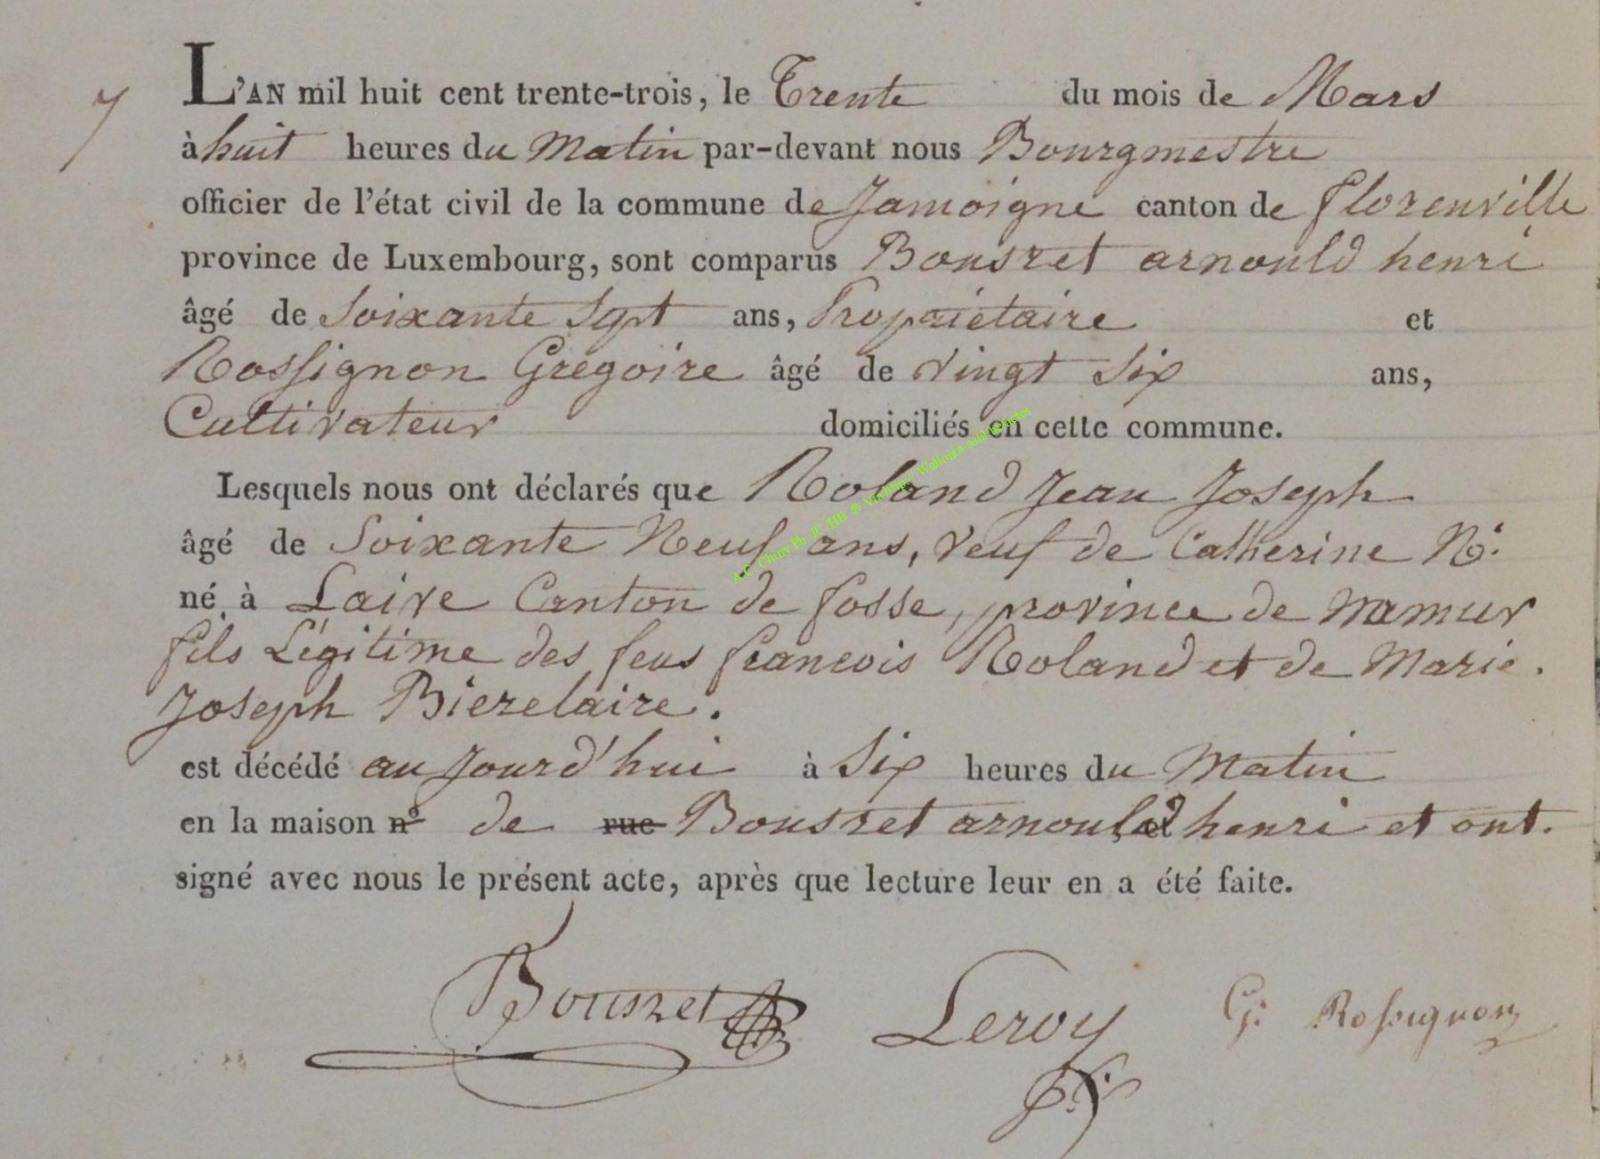 7
L'AN mil huit cent trente-trois, le Trente du mois de Mars
à huit heures du Matin par-devant nous Bourgmestre
officier de l'état civil de la commune de Jamoigne canton de florenville
province de Luxembourg, sont comparus Bousret arnould henri
âgé de Soixante Sept ans, Propriétaire et
Rossignon Gregoire âgé de Vingt Six ans,
Cultivateur domiciliés en cette commune.
Lesquels nous ont déclarés que Roland Jean Joseph
âgé de Soixante Neuf ans, Veuf de Catherine N.
né à Laive Canton de fosse, province de Namur
fils Légitime des feus francois Roland et de Marie.
Joseph Bierelaire.
est décédé aujourd'hui à Six heures du Matin
en la maison n° de rue Bousret arnould henri et ont.
signé avec nous le présent acte, après que lecture leur en a été faite.
Bousret Leroy G: Rossignon